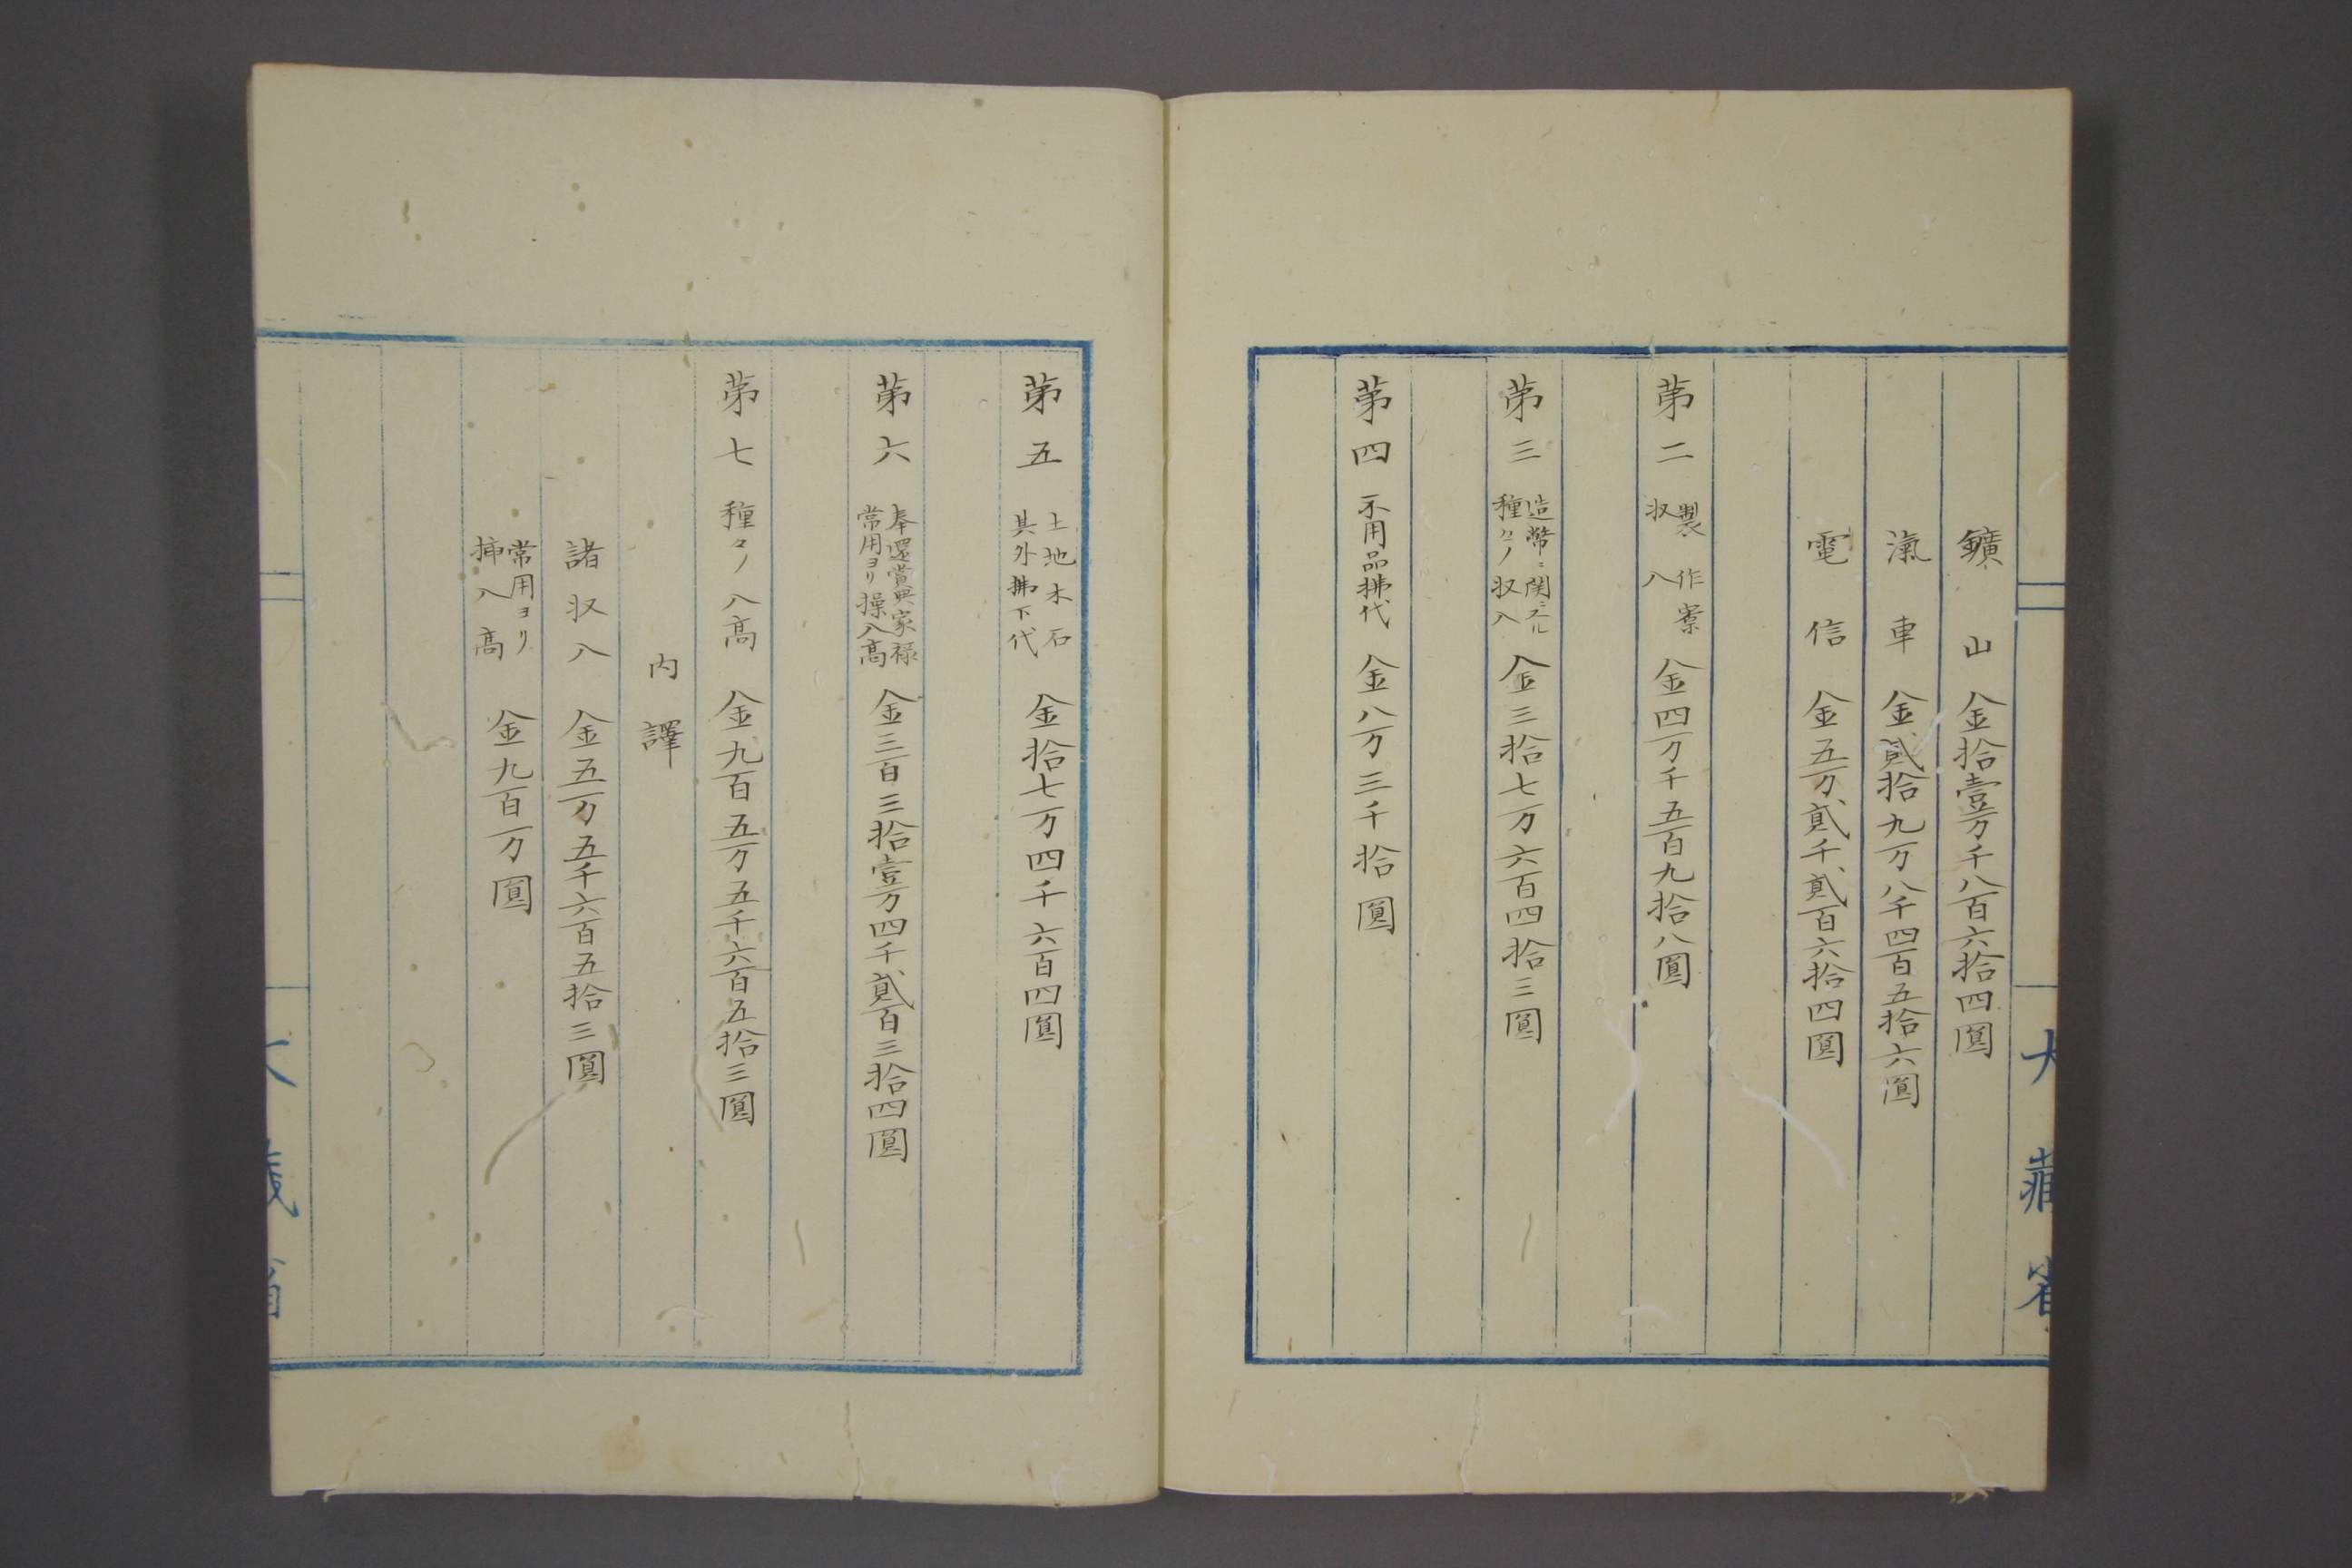 鑛山 金拾壹万千八百六拾四圓
滊車 金貳拾九万八千四百五拾六圓
電信 金五万貳千貳百六拾四圓
第二 製作寮収入 金四万千五百九拾八圓
第三 造幣ニ関スル種々ノ収入 金三拾七万六百四拾三圓
第四 不用品拂代 金八万三千拾圓
大藏省
第五 土地木石其外拂下代 金拾七万四千六百四圓
第六 奉還賞典家禄常用ヨリ操入高 金三百三拾壹万四千貳百三拾四圓
第七 種々ノ入高 金九百五万五千六百五拾三圓
内譯
諸収入 金五万五千六百五拾三圓
常用ヨリ挿入高 金九百万圓
大藏省